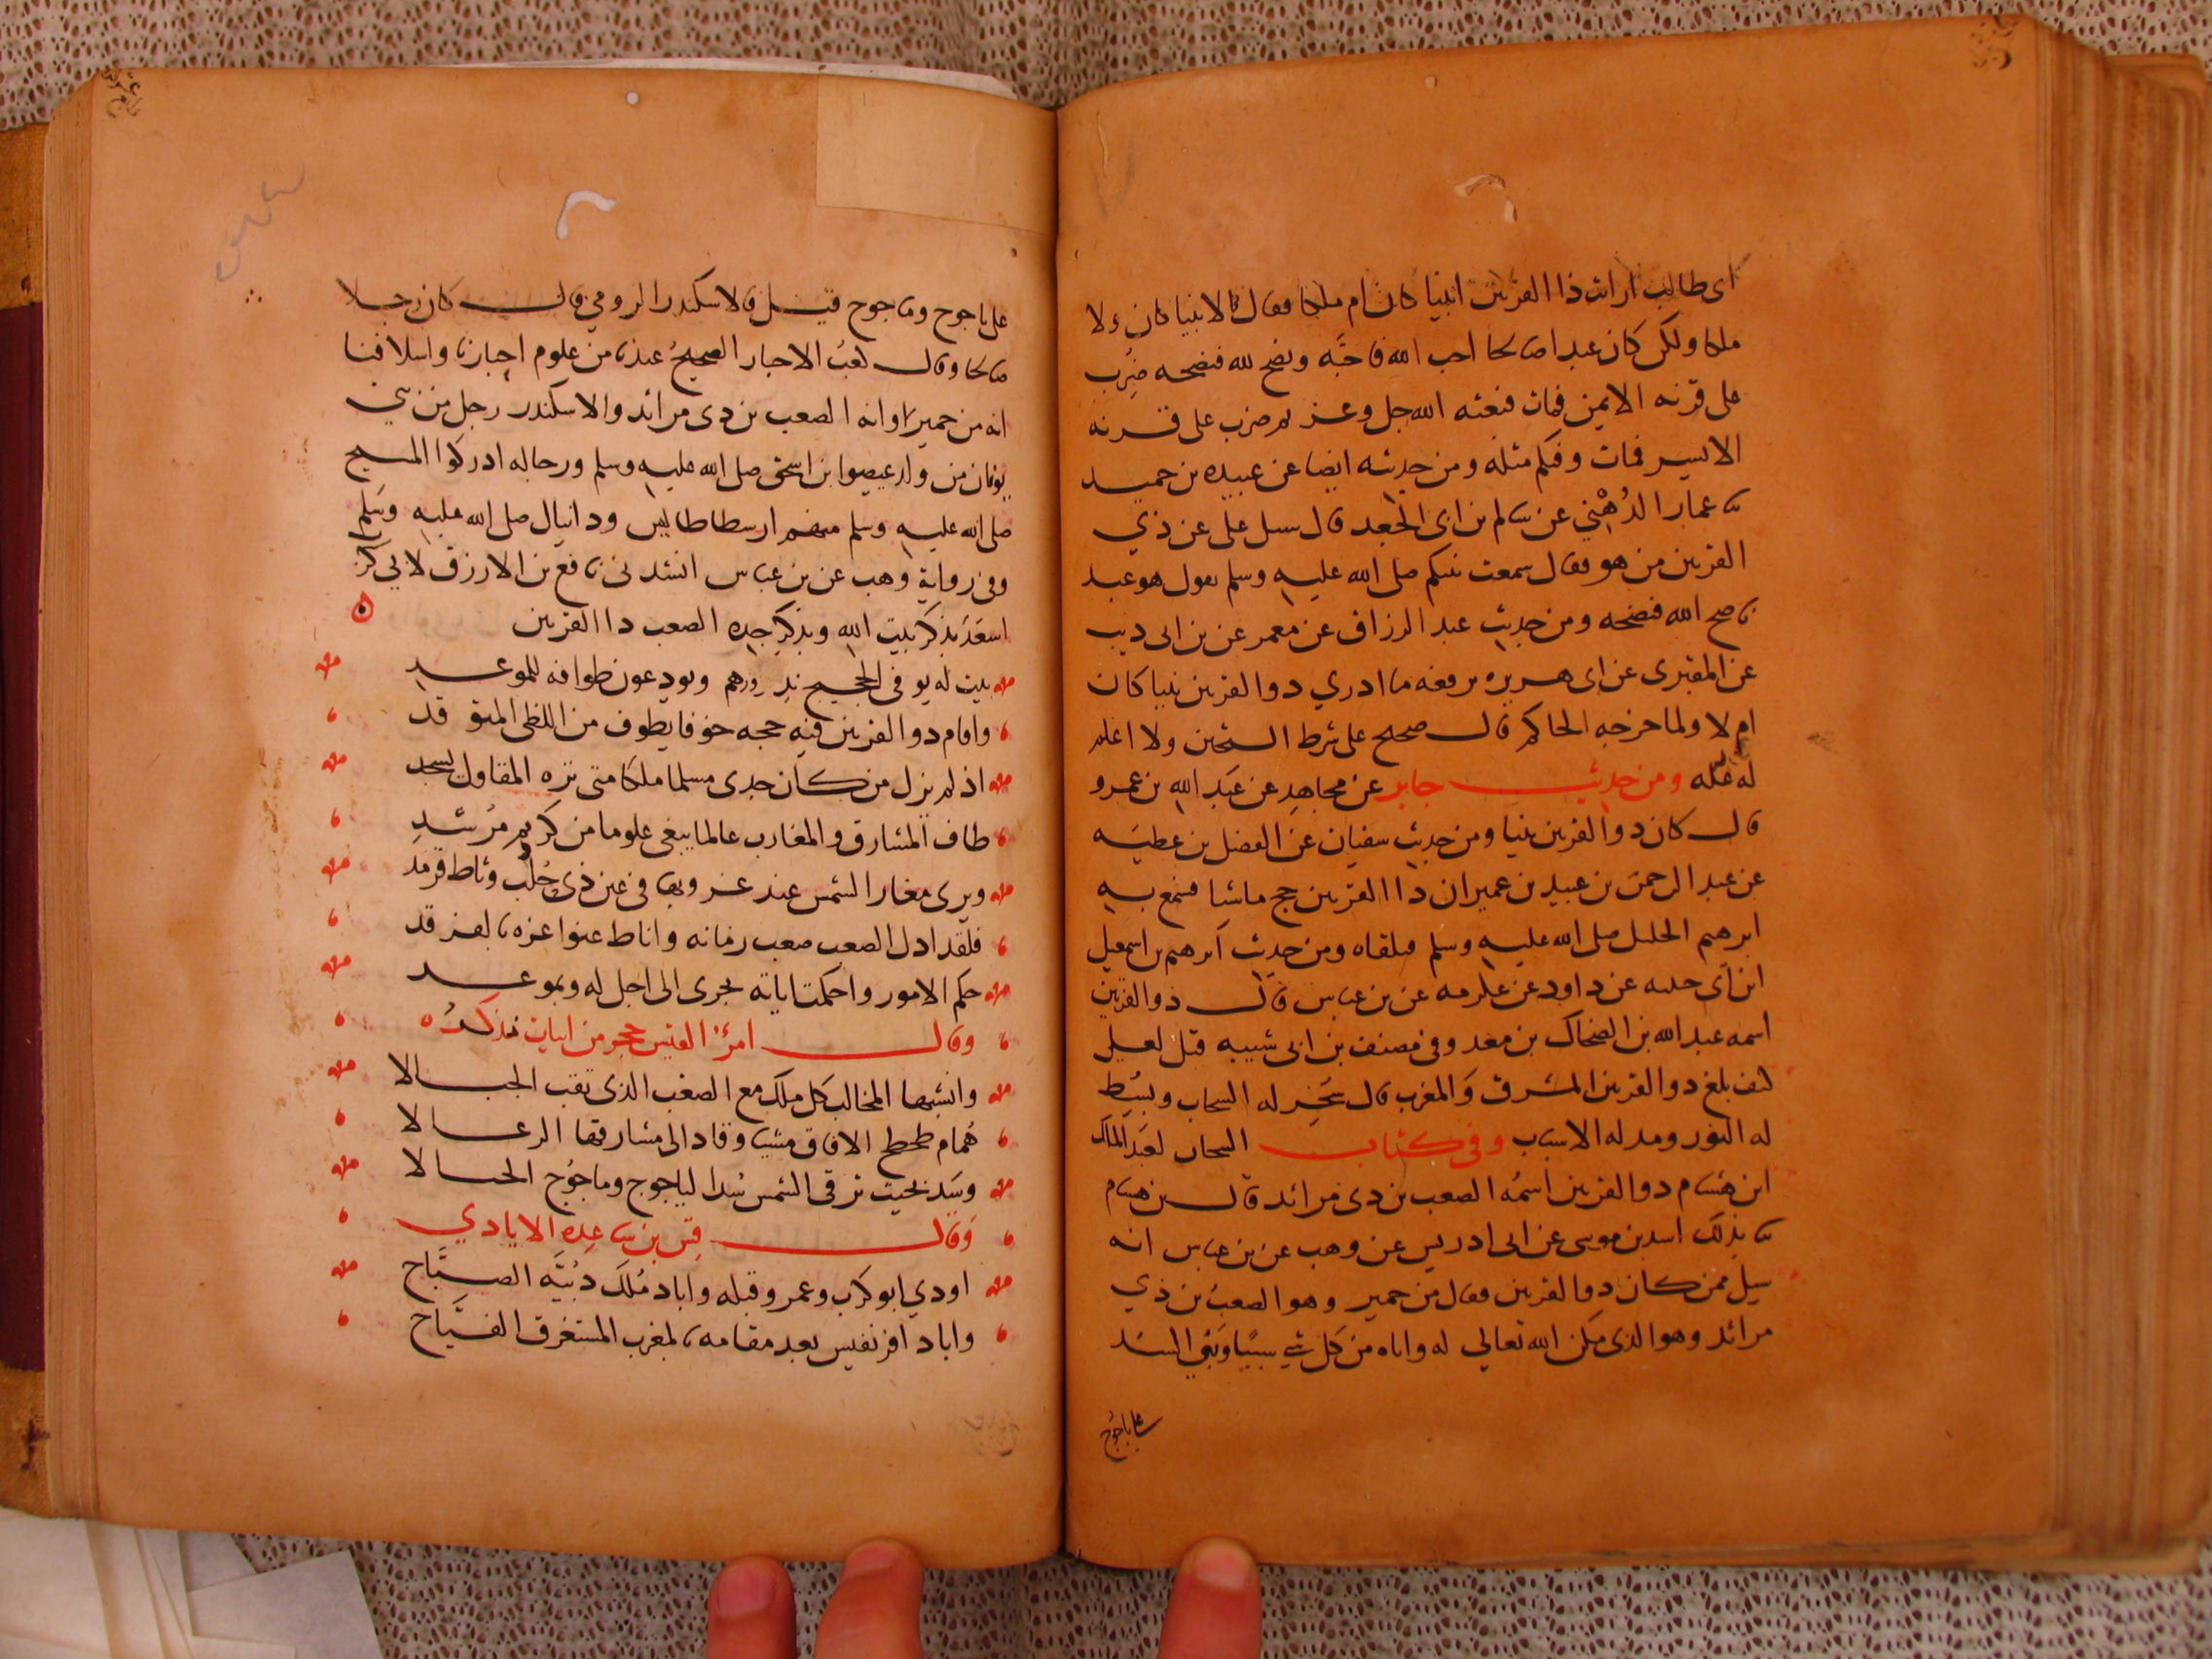 ابى طالب ارايت ذا القرنين انبيا كان ام ملكا فقال لا نبيا كان ولا
ملكا ولكن كان عبدا صالحا احب الله فاحبه ونصح لله فنصحه ضرب
على قرنه الايمن فمات فبعثه الله جل وعز ثم ضرب على قرنه
الايسر فمات وفيكم مثله ومن حديثه ايضا عن عبيده بن حميد
ثنا عمار الدُهْني عن سالم بن ابى الجعد قال سيل على عن ذي
القرنين من هو فقال سمعت نبيكم صلى الله عليه وسلم يقول هو عبد
ناصح الله فنصحه ومن حديث عبد الرزاق عن معمر عن بن ابى ذيب
عن المقبرى عن ابى هريره يرفعه ما ادري ذو القرنين نبيا كان
ام لا ولما خرجه الحاكم قال صحيح على شرط الشيخين ولا اعلم
له علّه ومن حديث جابر عن مجاهد عن عبد الله بن عمرو
قال كان ذو القرنين نبيا ومن حديث سفيان عن الفضل بن عطيه
عن عبد الرحمن بن عبيد بن عمير ان ذا القرنين حج ماشيا فسمع به
ابرهيم الخليل صلى الله عليه وسلم فتلقاه ومن حديث ابرهيم بن اسمعيل
ابن ابى حبيبه عن داود عن عكرمه عن بن عباس قال ذو القرنين
اسمه عبد الله بن الضحاك بن معد وفى مصنف بن ابى شيبه قيل لعلى
كيف بلغ ذو القرنين المشرق والمغرب قال سخر له السحاب وبسط
له النور ومد له الاسباب وفى كتاب التيجان لعبد الملك
ابن هشام ذو القرنين اسمه الصعب بن ذى مرائد قال بن هشام
ثنا بذلك اسد بن موسى عن ابى ادريس عن وهب عن بن عباس انه
سيل ممن كان ذو القرنين فقال من حمير وهو الصعب بن ذي
مرائد وهو الذى مكن الله تعالى له واتاه من كل شي سببًا وبنى السد
على ياجوج
على ياجوج وماجوج قيل فالاسكندر الرومي قال كان رجلا
صالحا وقال كعبُ الاحبار الصحيحُ عندنا من علوم احبارنا واسلافنا
انه من حمير وانه الصعب بن ذى مرائد والاسكندر رجل من بني
يونان من ولد عيصوا بن اسحق صلى الله عليه وسلم ورجاله ادركوا المسيح
صلى الله عليه وسلم منهم ارسطاطاليس ودانيال صلى الله عليه وسلم
وفى رواية وهب عن بن عباس انشدنى نافع بن الازرق لابى كرب
اسعد يذكر بيت الله ويذكر جده الصعب ذا القرنين
بيت له يوفى الحجيج نذورهم ويودعون طوافه للموعد
واقام ذو القرنين فيه حجه خوفا يطوف من اللظى المتوقد
اذ لم يزل من كان جدى مسلما ملكا متى تره المقاول تسجد
طاف المشارق والمغارب عالما يبغى علوما من كريم مرشد
ويرى مغار الشمس عند غروبها فى عين ذى خُلُب وثاط قرمد
فلقد اذل الصعب صعب زمانه واناط عنوا عزه بالفرقد
حكم الامور واحكمت اياته يجرى الى اجل له وبموعد
وقال امرؤ القيس حجر من ابيات نذكره
وانشبها المخالب كل ملك مع الصعب الذى نقب الجبالا
هُمام طحطح الافاق مشيا وقاد الى مشارقها الرعالا
وسَد بحيث ترقى الشمس سُدا لياجوج وماجُوج الجبالا
وَقال قِسّ بن ساعِده الايادي
اودي ابو كرب وعمرو قبله واباد مُلكَ ذبيّه الصبَّاح
واباد افرنقيس بعد مقامه بالمغرب المستغرق الفيَّاح